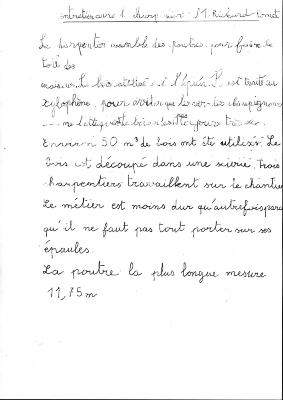 entretien avec 1 charp M. Rickard
Le charpentier assemble des poutres pour faire le
toit des
maisons. Le bois utilisé est l'épicéa. Il est traité au
xylophène pour éviter que les vers les champignons
ne l'attaquent le bois
Environ 50 m³ de bois ont été utilisés. Le
bois est découpé dans une scierie, trois
charpentiers travaillent sur le chantier
Le métier est moins dur qu'autrefois parce
qu'il ne faut pas tout porter sur ses
épaules.
La poutre la plus longue mesure
11,75 m